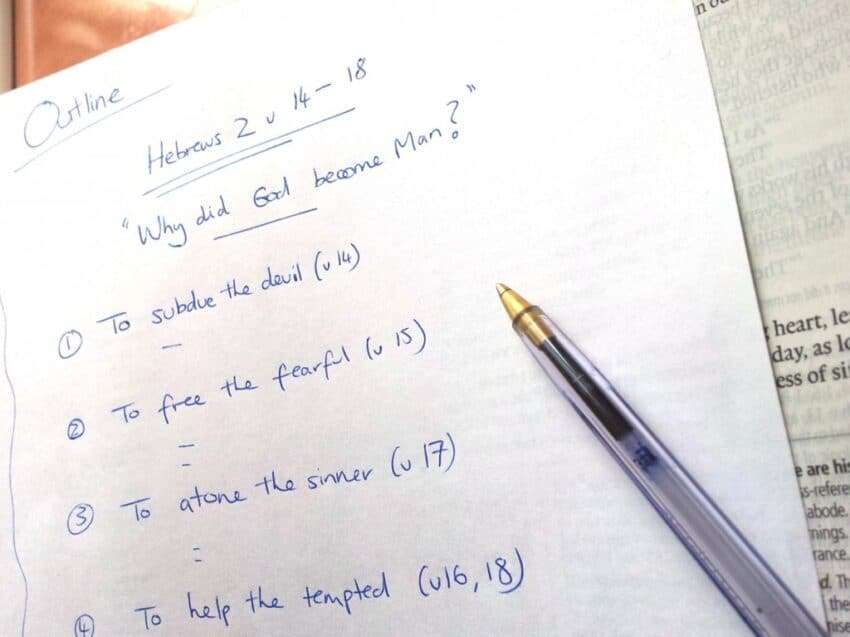 Outline
Hebrews 2 v 14-18
"Why did God become Man?"
① To subdue the devil (v 14)
② To free the fearful (v 15)
③ To atone the sinner (v 17)
④ To help the tempted (v16, 18)
heart, le
day, as lo
ess of si
e are his
s-refere
abode.
nings.
rance.
d. Th
the